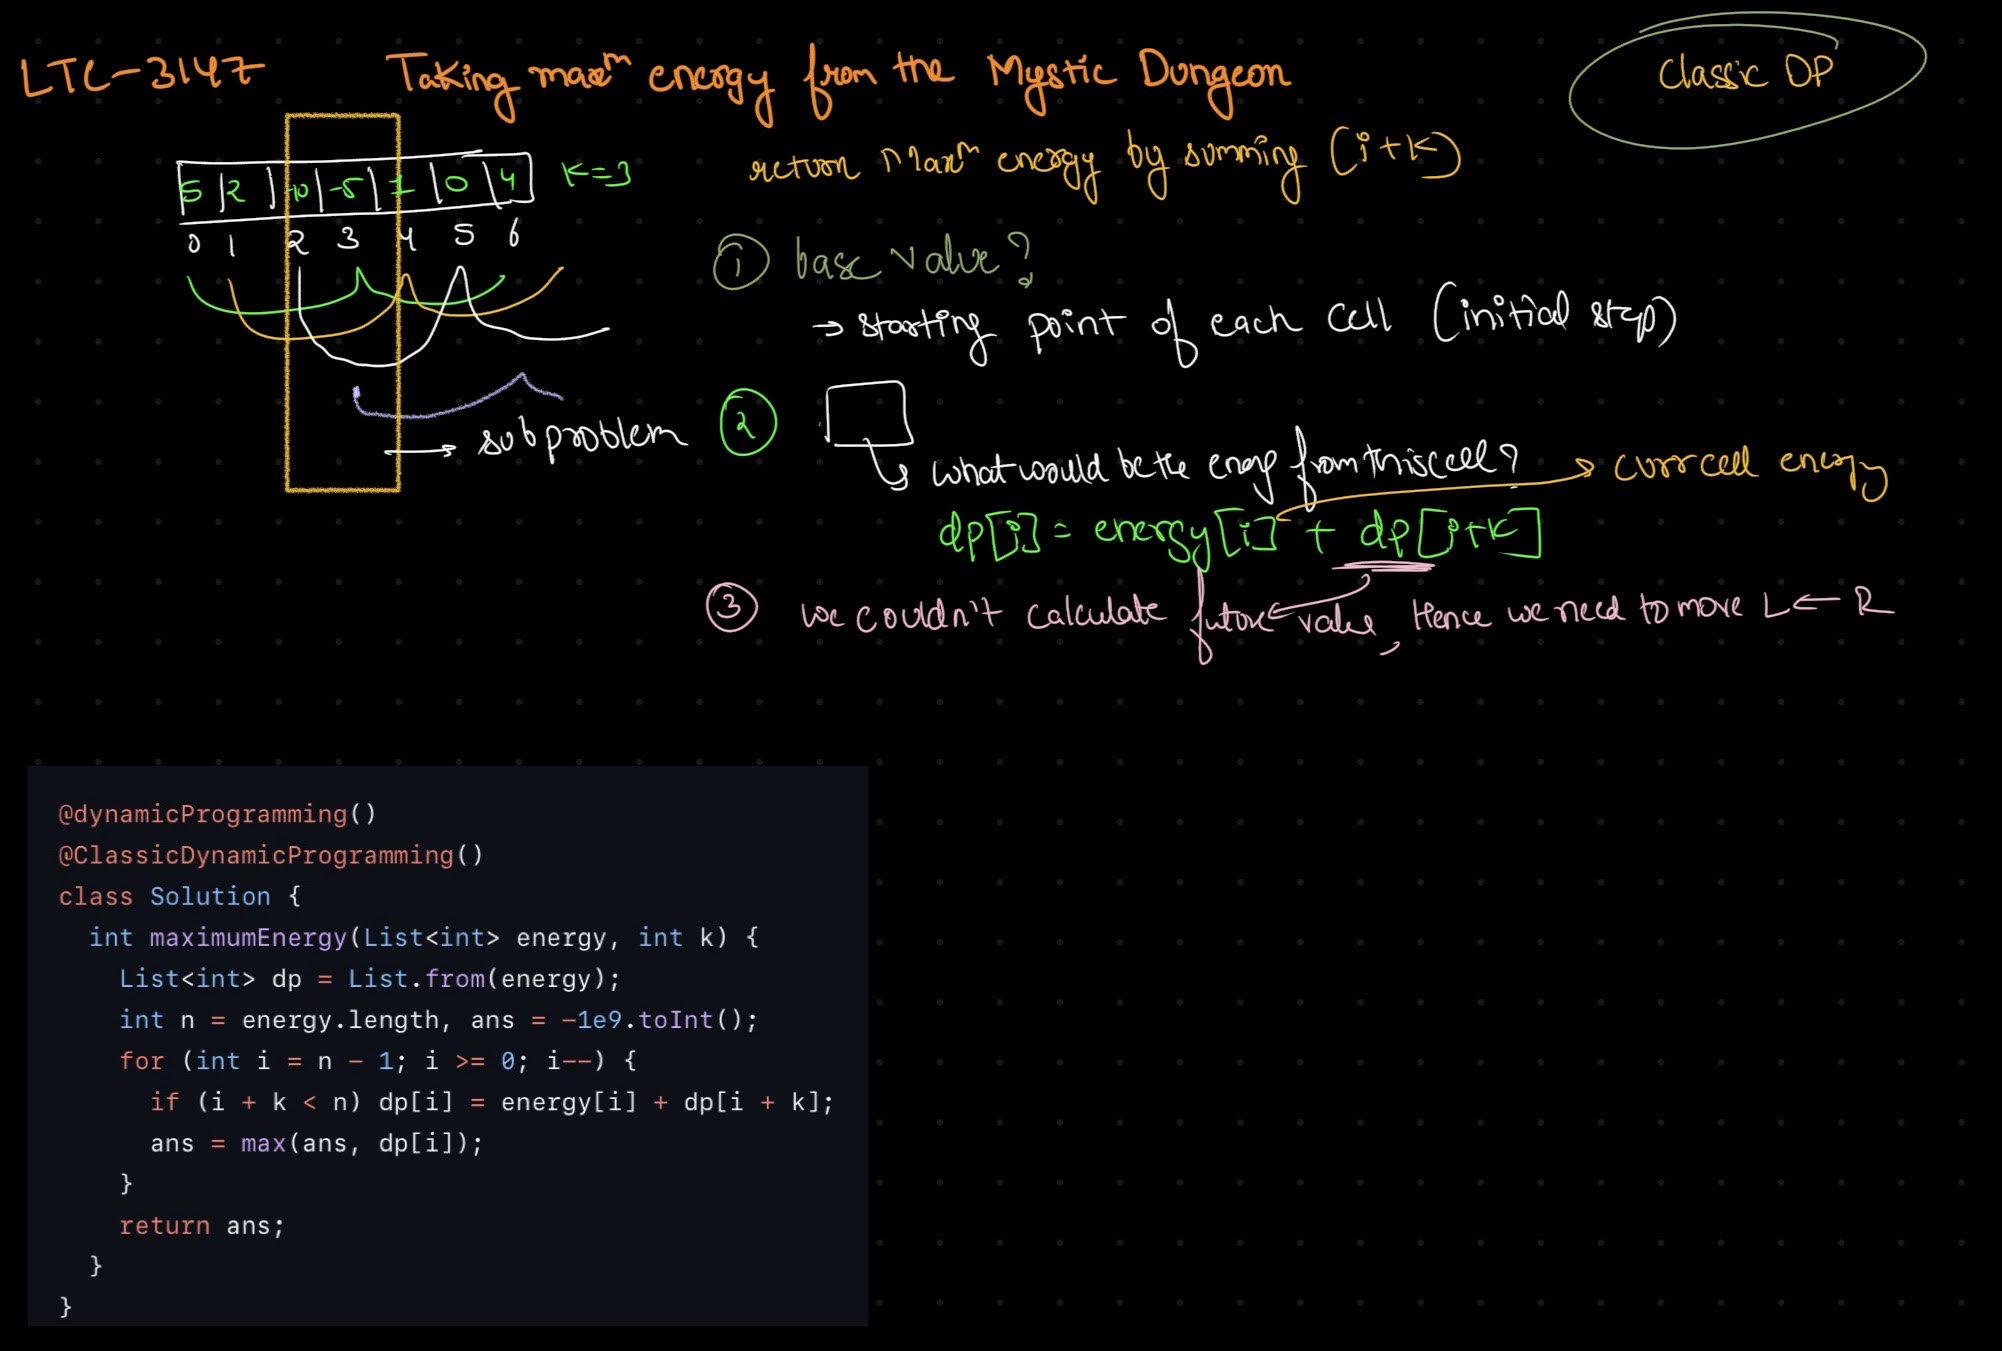 LTC-3147 Taking maxm energy from the Mystic Dungeon
Classic DP
return Maxm energy by summing (i+K)
5 | 2 | -10 | -5 | 1 | 0 | 4 K=3
0 1 2 3 4 5 6
① base value?
→ starting point of each cell (initial step)
→ subproblem
②
what would be the energy from this cell? → curr cell energy
dp[i] = energy[i] + dp[i+K]
③ we couldn't calculate future value, Hence we need to move L ← R
@dynamicProgramming()
@ClassicDynamicProgramming()
class Solution {
  int maximumEnergy(List<int> energy, int k) {
    List<int> dp = List.from(energy);
    int n = energy.length, ans = -1e9.toInt();
    for (int i = n - 1; i >= 0; i--) {
      if (i + k < n) dp[i] = energy[i] + dp[i + k];
      ans = max(ans, dp[i]);
    }
    return ans;
  }
}